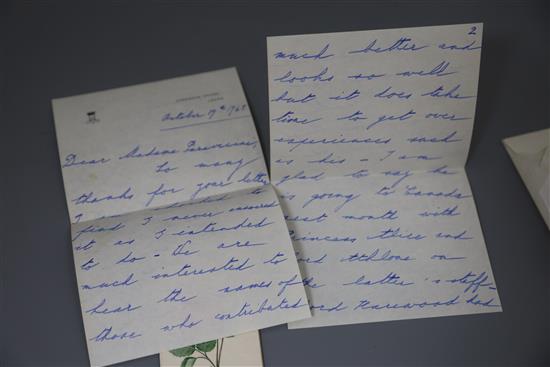 October 19th 1945
Dear Madame
So many
thanks for your letter
find I never answered
it as I intended
to do - We are
much interested to
hear the names of
those who contributed
2
much better and
looks so well
but it does take
time to get over
experiences such
as his - I am
glad to say he
is going to Canada
next month with
Princess Alice and
Lord Athlone on
the latter's staff -
Lord Harewood had